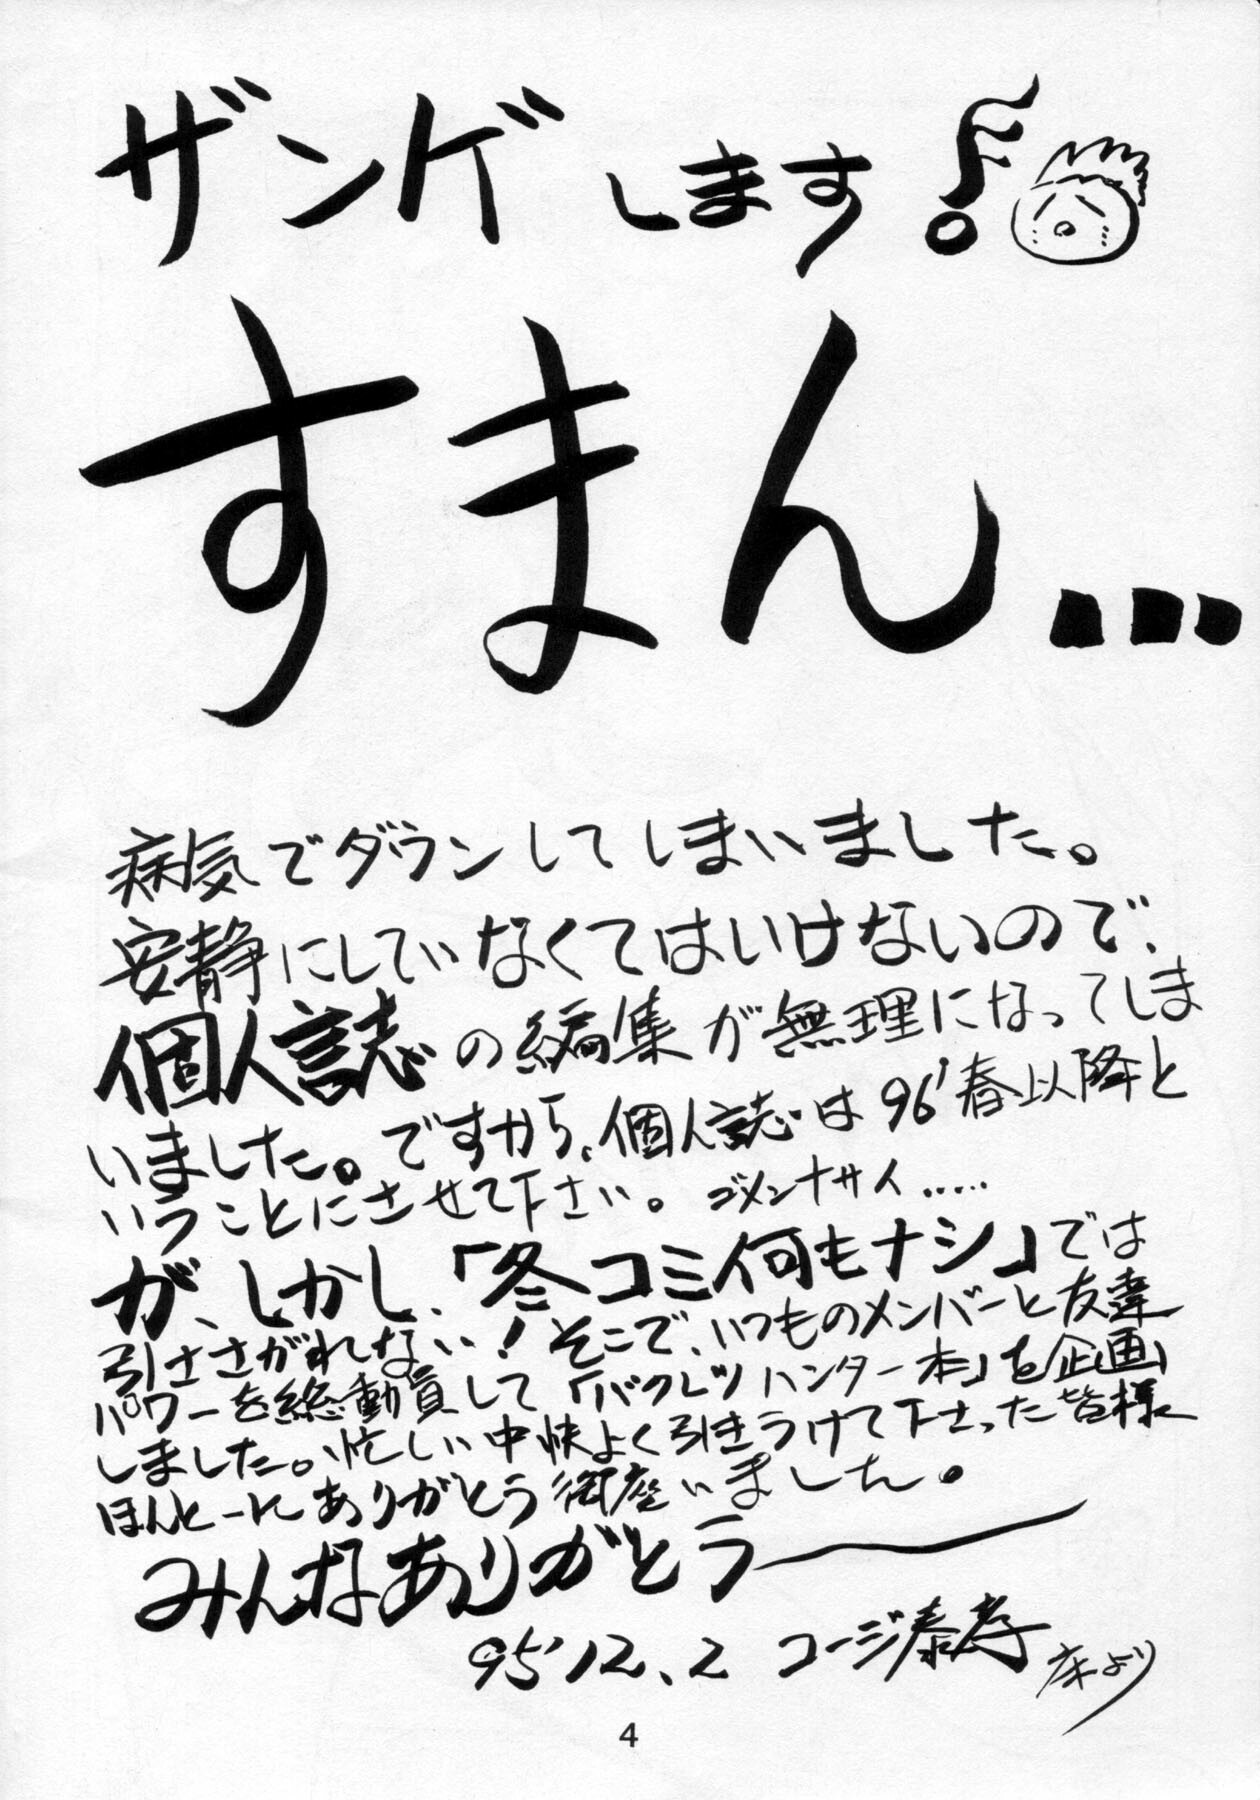 ザンゲします!
すまん…
病気でダウンしてしまいました。
安静にしていなくてはいけないので、
個人誌の編集が無理になってしま
いました。ですから、個人誌は96'春以降と
いうことにさせて下さい。ゴメンナサイ.....
が、しかし、「冬コミ何もナシ」では
引きさがれない！そこで、いつものメンバーと友達
パワーを総動員して「バクレツハンター本」を企画
しました。忙しい中快よく引きうけて下さった皆様
ほんとーにありがとう御座いました。
みんなありがとうー
95'12.2 コージ泰孝 床より
4